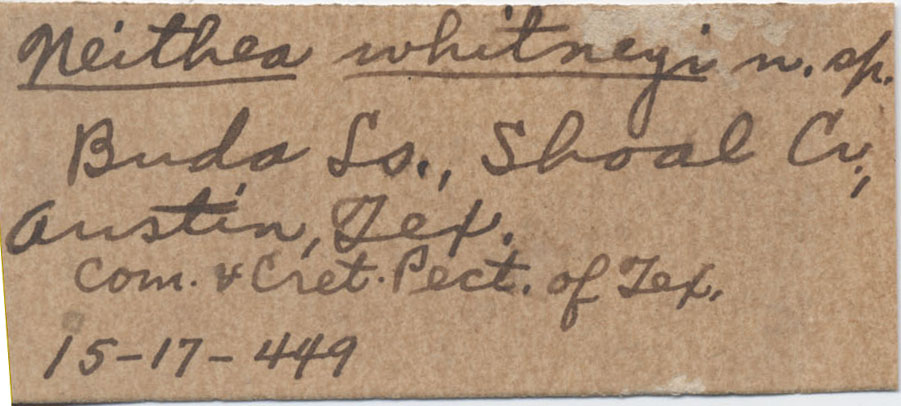 Neithea whitneyi n. sp.
Buda Ls., Shoal Cr.,
Austin, Tex.
Com. & Cret. Pect. of Tex.
15-17-449